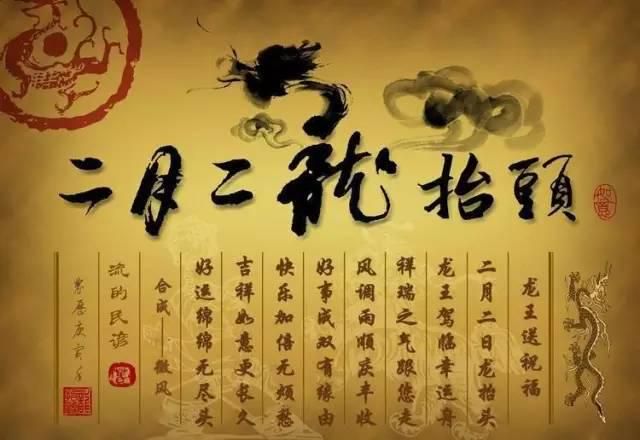 二月二龍抬頭
如意
龙王送祝福
二月二日龙抬头
龙王驾临幸运舟
祥瑞之气跟您走
风调雨顺庆丰收
好事成双有缘由
快乐加倍无烦愁
吉祥如意更长久
好运绵绵无尽头
合成——微风
流的民谚
農歷庚寅年